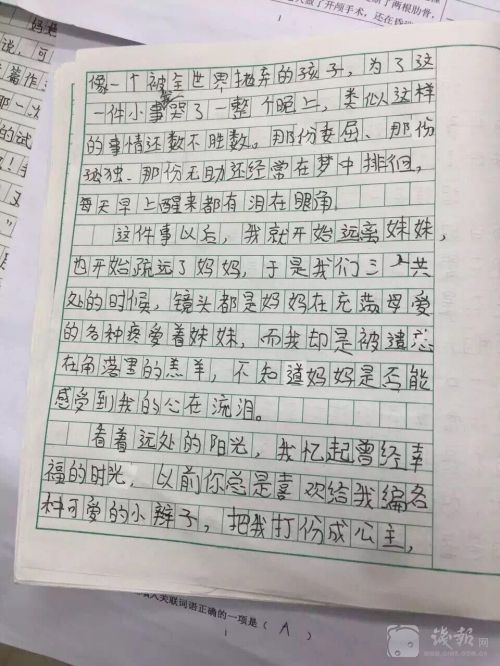 了两根肋骨,
做了开颅手术,还在昏
1
妈妈
说,可
篇作
那一次
的试
像一个被全世界抛弃的孩子,为了这
一件小事哭了一整个晚上,类似这样
的事情还数不胜数。那份委屈、那份
孤独、那份无助还经常在梦中排徊,
每天早上醒来都有泪在眼角。
这件事以后,我就开始远离妹妹,
也开始疏远了妈妈,于是我们三人共
处的时候,镜头都是妈妈在充满母爱
的各种疼爱着妹妹,而我却是被遗忘
在角落里的羔羊,不知道妈妈是否能
感受到我的心在流泪。
看着远处的阳光,我忆起曾经幸
福的时光,以前你总是喜欢给我编各
种可爱的小辫子,把我打份成公主,
入关联词语正确的一项是( A )
1
钱报网
WWW.QJWB.COM.CN